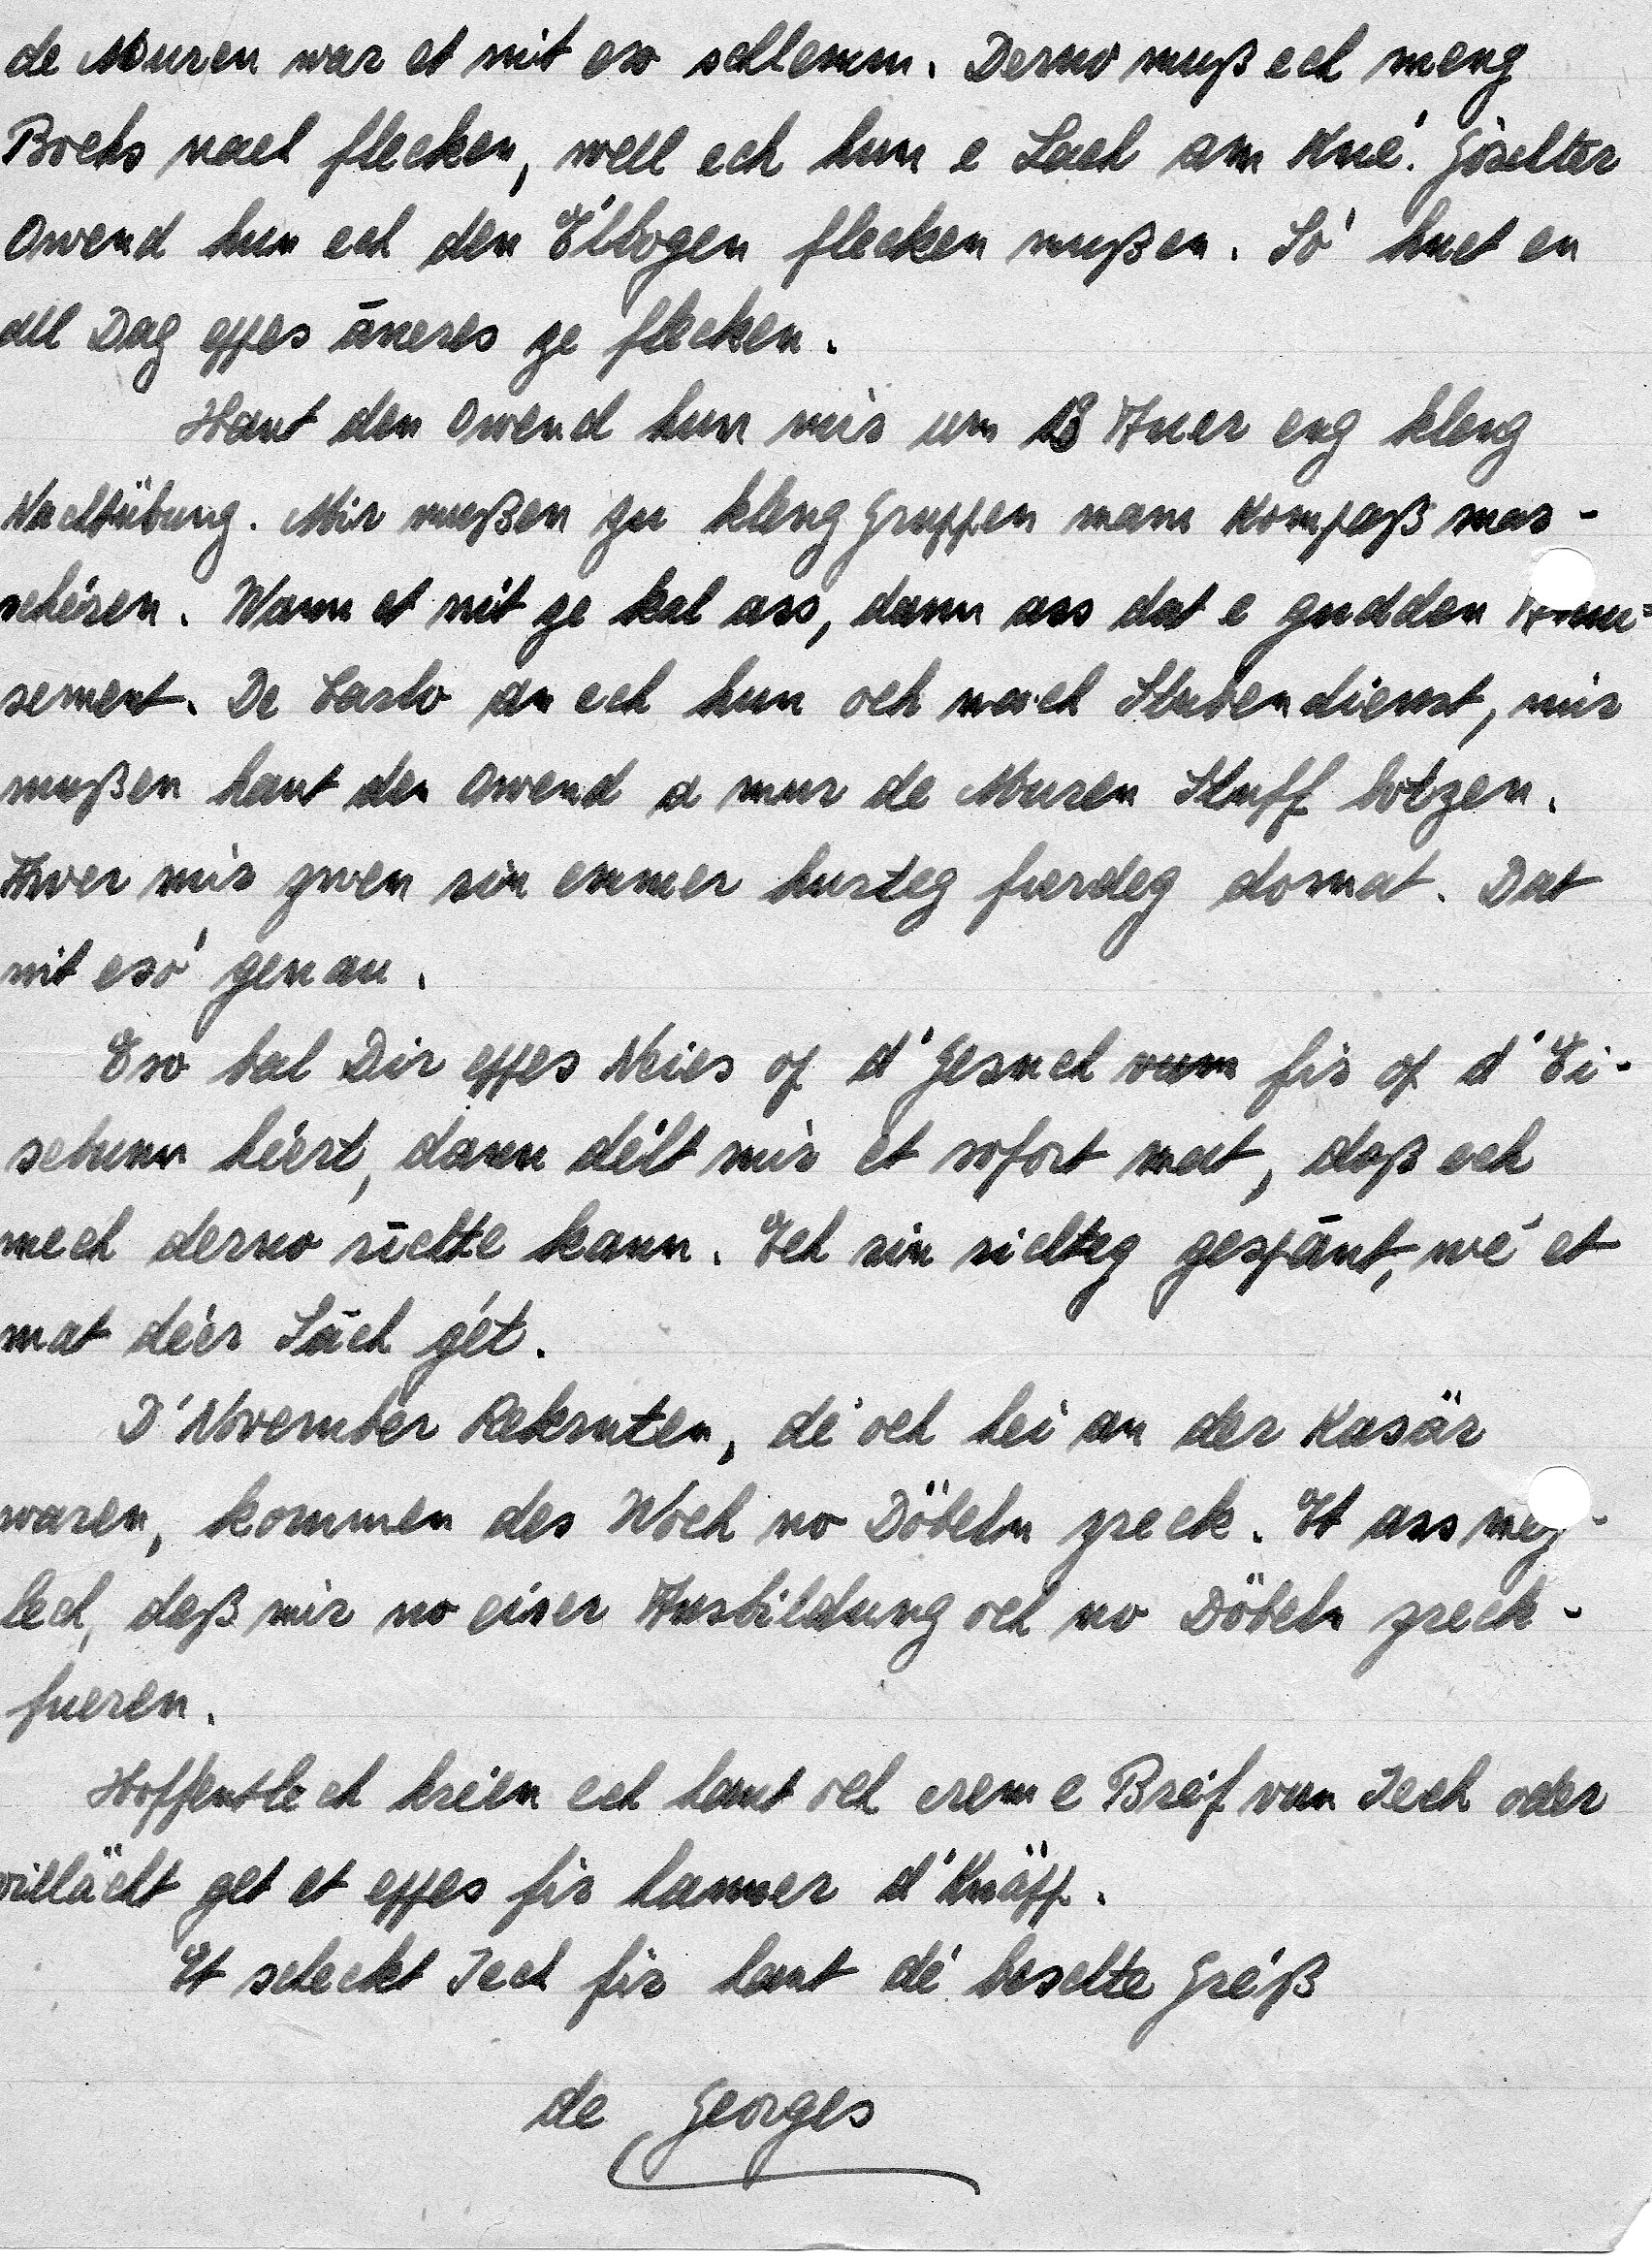 de Muren war et nit eso schlemm. Derno muß ech meng
Bochs nach flecken, well ech hun e Lach am Kné. Göschter
Owend hun ech den Élbogen flecken mußen. Só huet en
all Dag eppes āneres ze flecken.
Haut den Owend hun mir um 18 Auer eng kleng
Nachtübung. Mir mußen zu kleng Gruppen mam Kompaß mar-
schéren. Wann et nit ze kal ass, dann ass dat e gudden Amu-
sement. De Carlo an ech hun och nach Stubendienst, mir
mußen haut den Owend a mur de Muren Stuff botzen.
Awer mir zwen sin emmer hurteg fœrdeg domat. Dat
nit esó genau.
Eso bal Dir eppes Neies op d'Gesuch vum fir op d'Ei-
sebunn héert, dann délt mir et sofort mat, daß ech
mech derno riichte kann. Ech sin richteg gespānt, wé et
mat déer Sāch gét.
D'November Rekruten, dé och hei an der Kasär
waren, kommen des Woch no Döbeln zreck. Et ass még-
lech, daß mir no eiser Ausbildung och no Döbeln zreck-
fueren.
Hoffentlech kréien ech haut och erem e Bréf vun Iech oder
villächt get et eppes fir hanner d'Knäpp.
Et scheckt Iech fir haut dé beschte Gréß
de Georges